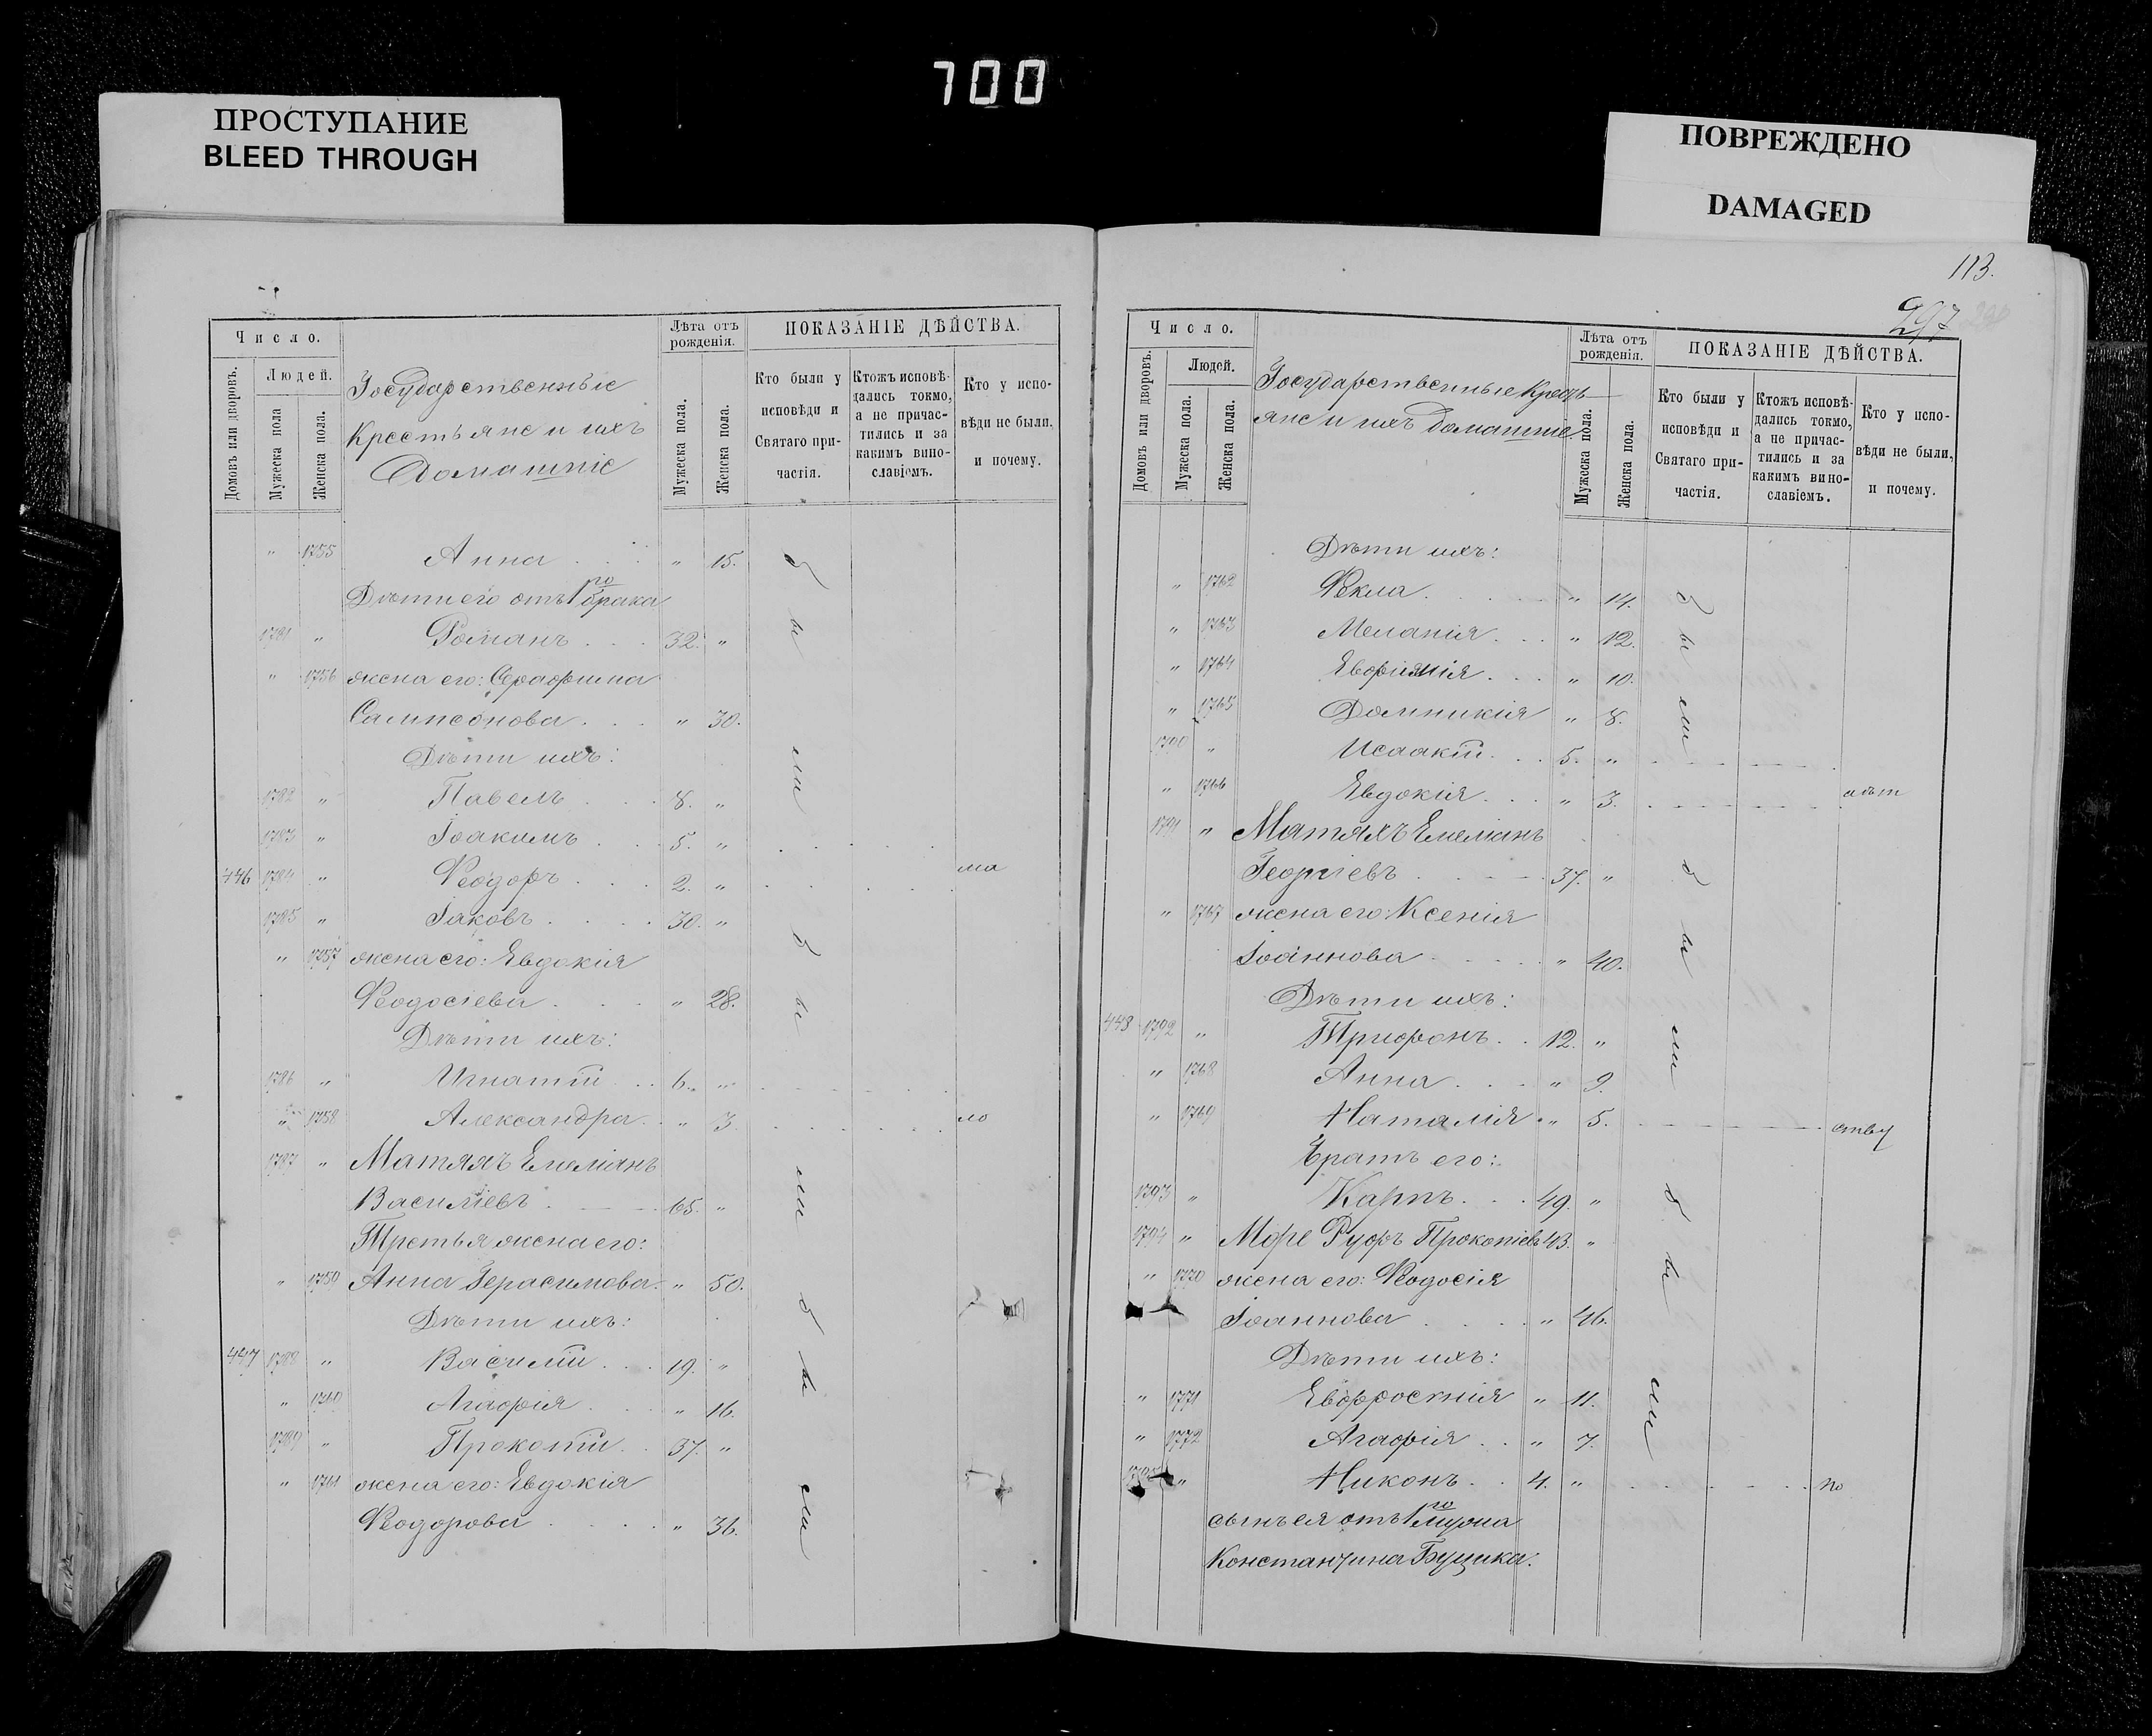 700
ПРОСТУПАНИЕ
BLEED THROUGH
ПОВРЕЖДЕНО
DAMAGED
Число.
Людей.
Домовъ или дворовъ.
Мужеска пола
Женска пола.
Государственные
Крестьяне и ихъ
Домашніе
Лѣта отъ рожденія.
Мужеска пола.
Женска пола.
ПОКАЗАНІЕ ДѢЙСТВА.
Кто были у исповѣди и Святаго причастія.
Ктожъ исповѣдались токмо, а не причастились и за какимъ винославіемъ.
Кто у исповѣди не были, и почему.
" 1755 Анна " 15.
Дѣти его отъ 1го брака
1781 " Романъ 32. "
" 1756 жена его: Серафима
Сампсонова " 30.
Дѣти ихъ:
1782 " Павелъ 8. "
1783 " Іоакимъ 5. "
446 1784 " Ѳеодоръ 2. " ма
1785 " Іаковъ 30. "
" 1757 жена его: Евдокія
Ѳеодосіева " 28.
Дѣти ихъ:
1786 " Игнатій 6. "
" 1758 Александра " 3. ло
1787 " Матяхъ Емеліанъ
Василіевъ 65. "
Третья жена его:
" 1759 Анна Герасимова " 50.
Дѣти ихъ:
447 1788 " Василій 19. "
" 1760 Агафія " 16.
1789 " Прокопій 37. "
" 1761 жена его: Евдокія
Ѳеодорова " 36.
б ы ли
б ы ли
б ы ли
113.
297
Число.
Людей.
Домовъ или дворовъ.
Мужеска пола.
Женска пола.
Государственные Кресть
яне и ихъ домашніе
Лѣта отъ рожденія.
Мужеска пола.
Женска пола.
ПОКАЗАНІЕ ДѢЙСТВА.
Кто были у исповѣди и Святаго причастія.
Ктожъ исповѣдались токмо, а не причастились и за какимъ винославіемъ.
Кто у исповѣди не были, и почему.
Дѣти ихъ:
" 1762 Ѳекла " 14.
" 1763 Меланія " 12.
" 1764 Евфимія " 10.
" 1765 Домникія " 8.
1790 " Исаакій 5. "
" 1766 Евдокія " 3. лѣт
1791 " Матяхъ Емеліанъ
Георгіевъ 37. "
" 1767 жена его: Ксенія
Іоаннова " 40.
Дѣти ихъ:
448 1792 " Трифонъ 12. "
" 1768 Анна " 9.
" 1769 Наталія " 5. ству
Братъ его:
1793 " Карпъ 49. "
1794 " Море Руфъ Прокопіевъ 43. "
" 1770 жена его: Ѳеодосія
Іоаннова " 46.
Дѣти ихъ:
" 1771 Евфросинія " 11.
" 1772 Агафія " 7.
1795 " Никонъ 4. " по
сынъ ея отъ 1го мужа
Константина Буцика:
б ы ли
б ы ли
б ы ли